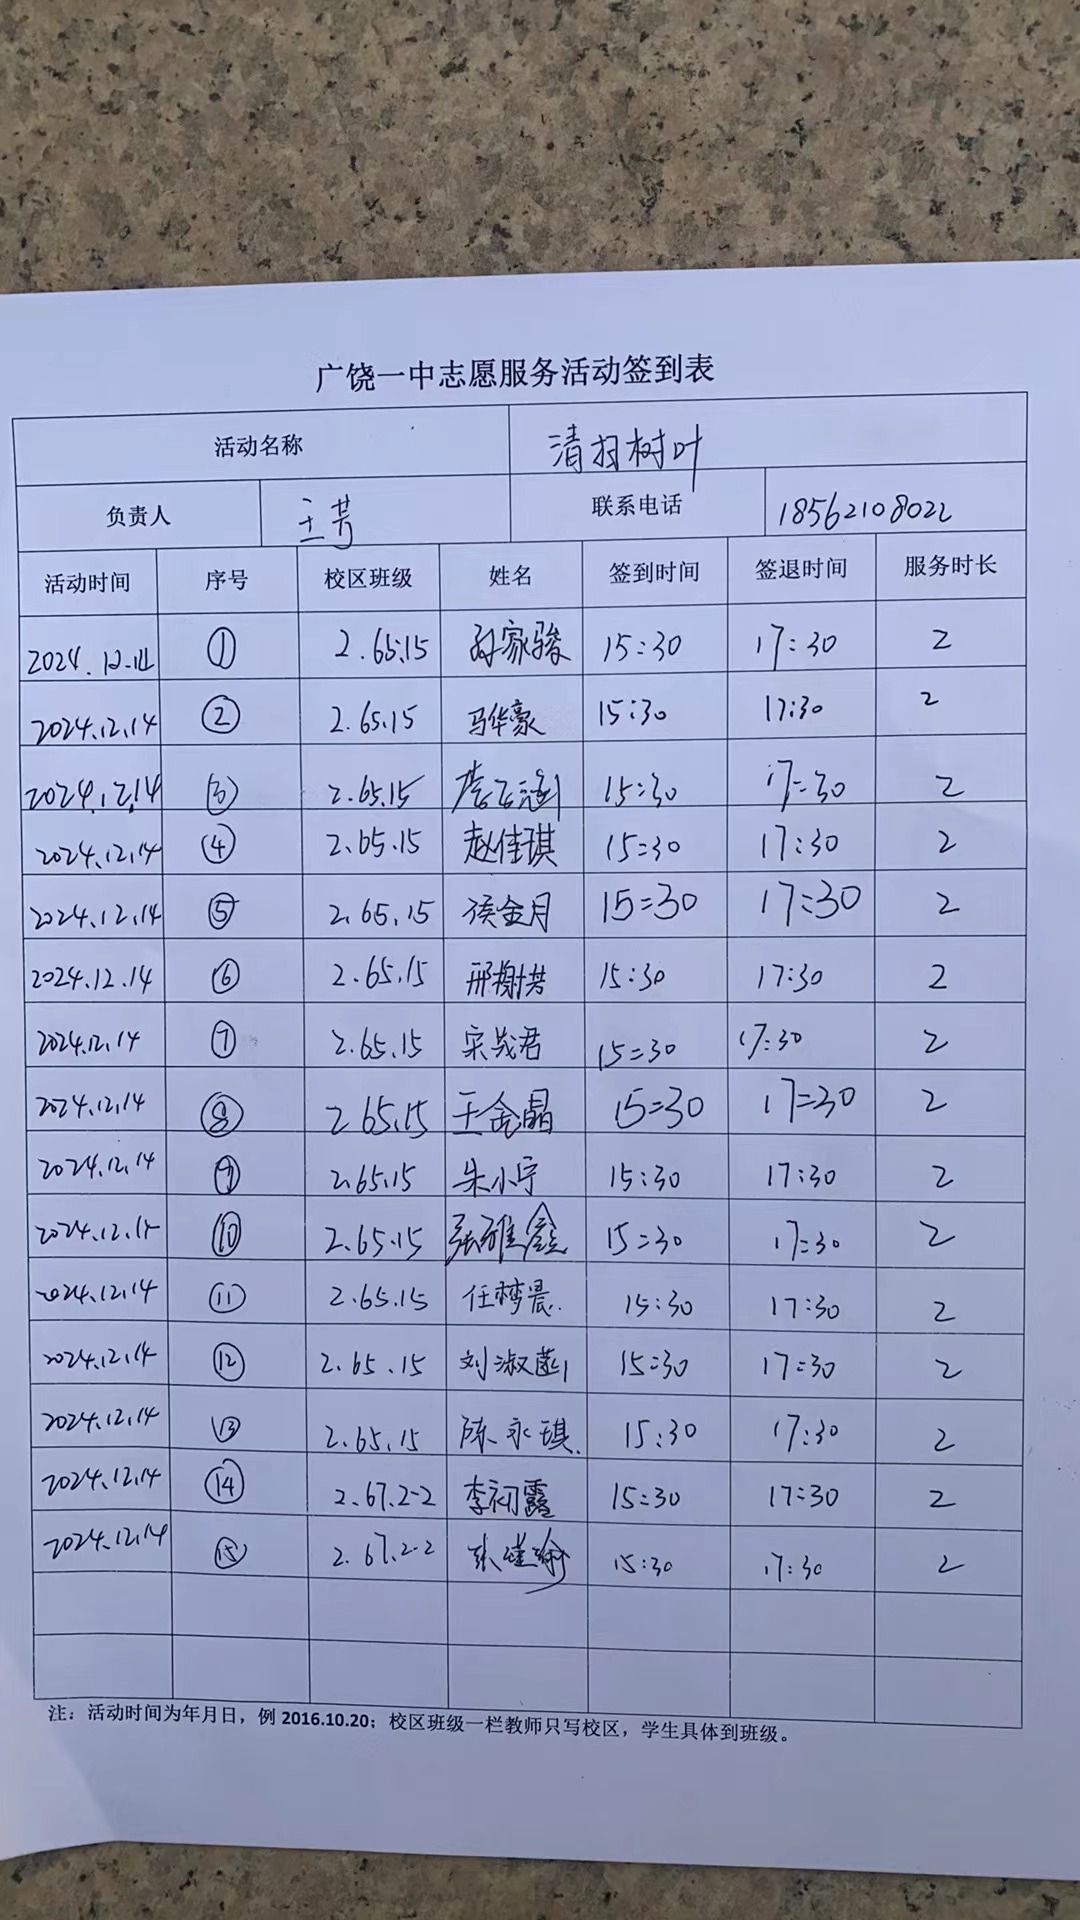 广饶一中志愿服务活动签到表
活动名称 清扫树叶
负责人 王芳 联系电话 18562108022
活动时间 序号 校区班级 姓名 签到时间 签退时间 服务时长
2024.12.14 ① 2.65.15 孙家骏 15:30 17:30 2
2024.12.14 ② 2.65.15 马华豪 15:30 17:30 2
2024.12.14 ③ 2.65.15 15:30 17:30 2
2024.12.14 ④ 2.65.15 赵佳琪 15:30 17:30 2
2024.12.14 ⑤ 2.65.15 侯金月 15:30 17:30 2
2024.12.14 ⑥ 2.65.15 15:30 17:30 2
2024.12.14 ⑦ 2.65.15 15:30 17:30 2
2024.12.14 ⑧ 2 65.15 王金晶 15:30 17:30 2
2024.12.14 ⑨ 2.65.15 朱小宁 15:30 17:30 2
2024.12.14 ⑩ 2.65.15 张雅鑫 15:30 17:30 2
2024.12.14 ⑪ 2.65.15 任梦晨. 15:30 17:30 2
2024.12.14 ⑫ 2.65.15 刘淑菡 15:30 17:30 2
2024.12.14 ⑬ 2.65.15 陈永琪. 15:30 17:30 2
2024.12.14 ⑭ 2.67.2-2 李初露 15:30 17:30 2
2024.12.14 ⑮ 2.67.2-2 15:30 17:30 2
注：活动时间为年月日，例 2016.10.20；校区班级一栏教师只写校区，学生具体到班级。